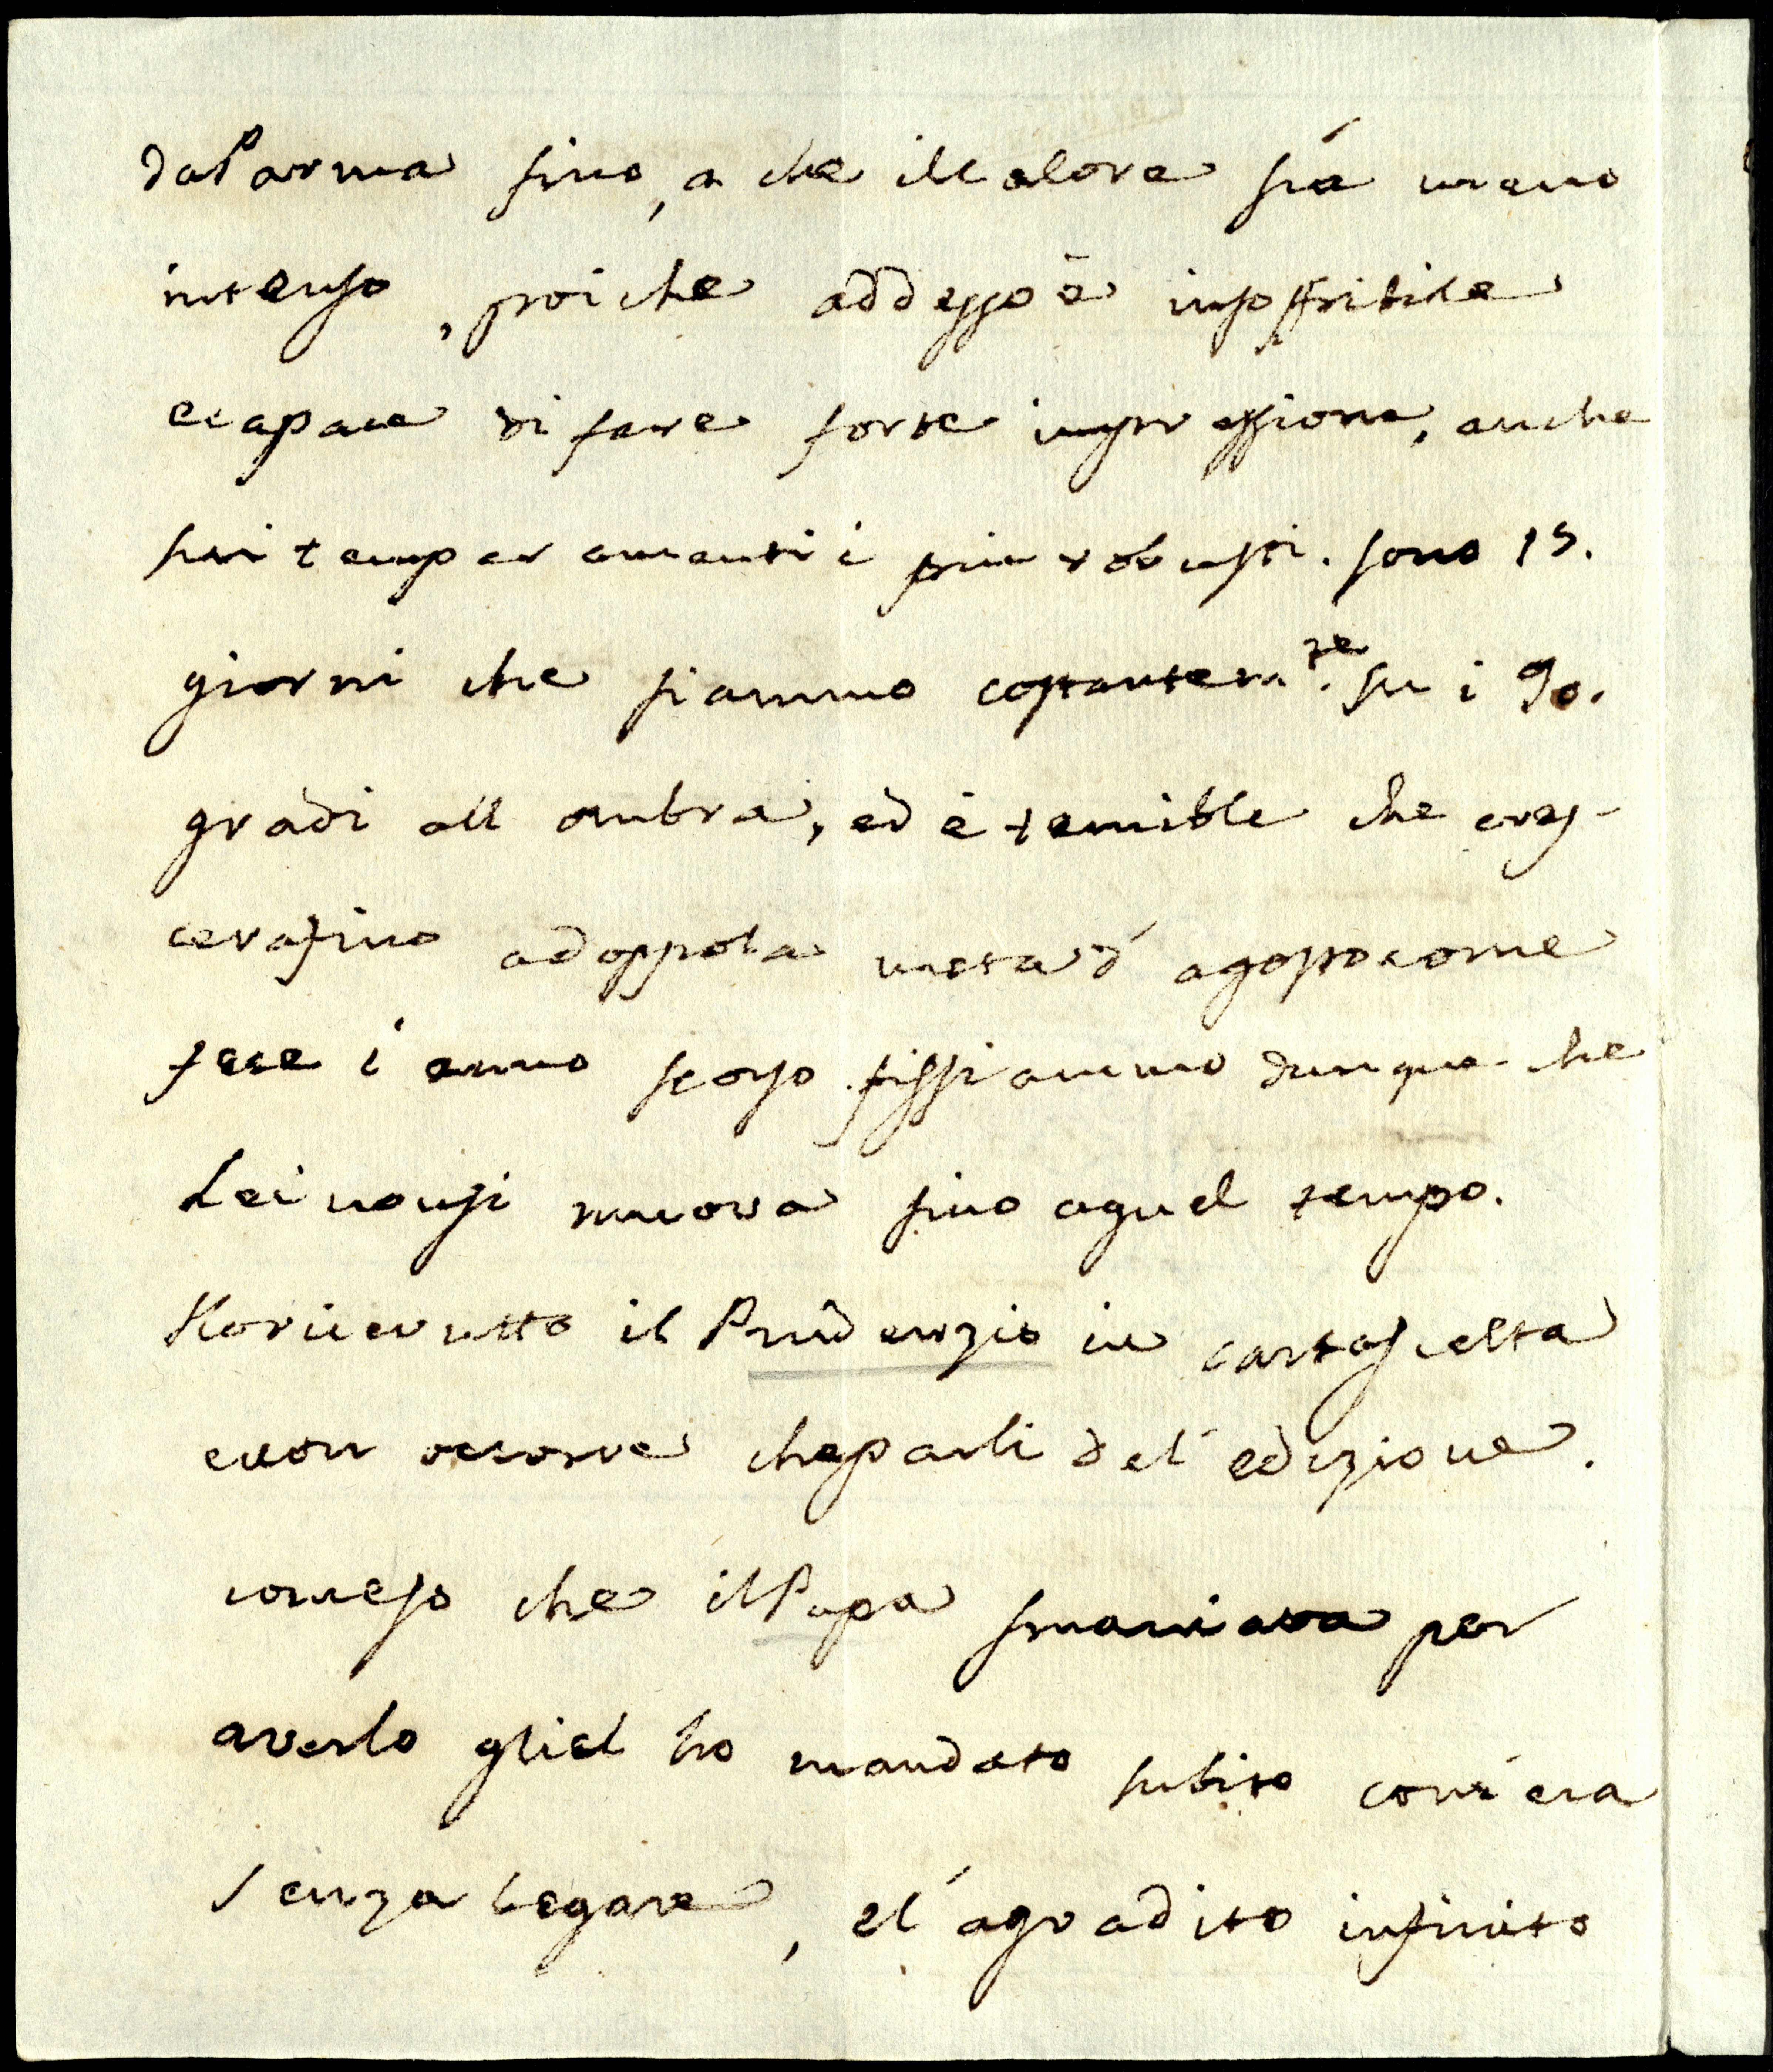 da Parma fino, a che il Calore sia meno
intenso, poiche addesso è insoffribile
e capace di fare forte impressione, anche
sui temperamenti i piu robusti. sono 15.
giorni che siammo costantem.te su i 90.
gradi all ombra, ed è temibile che cres-
cera fino adoppo la meta d' agosto come
fece l' anno scorso. fissiammo dunque che
Lei non si muova fino a quel tempo.
Ho ricevutto il Prudenzio in carta scelta
e non occorre che parli del' edizione.
inteso che il Papa smaniava per
averlo gliel ho mandato subito com' era
senza legare, el' agradito infinito